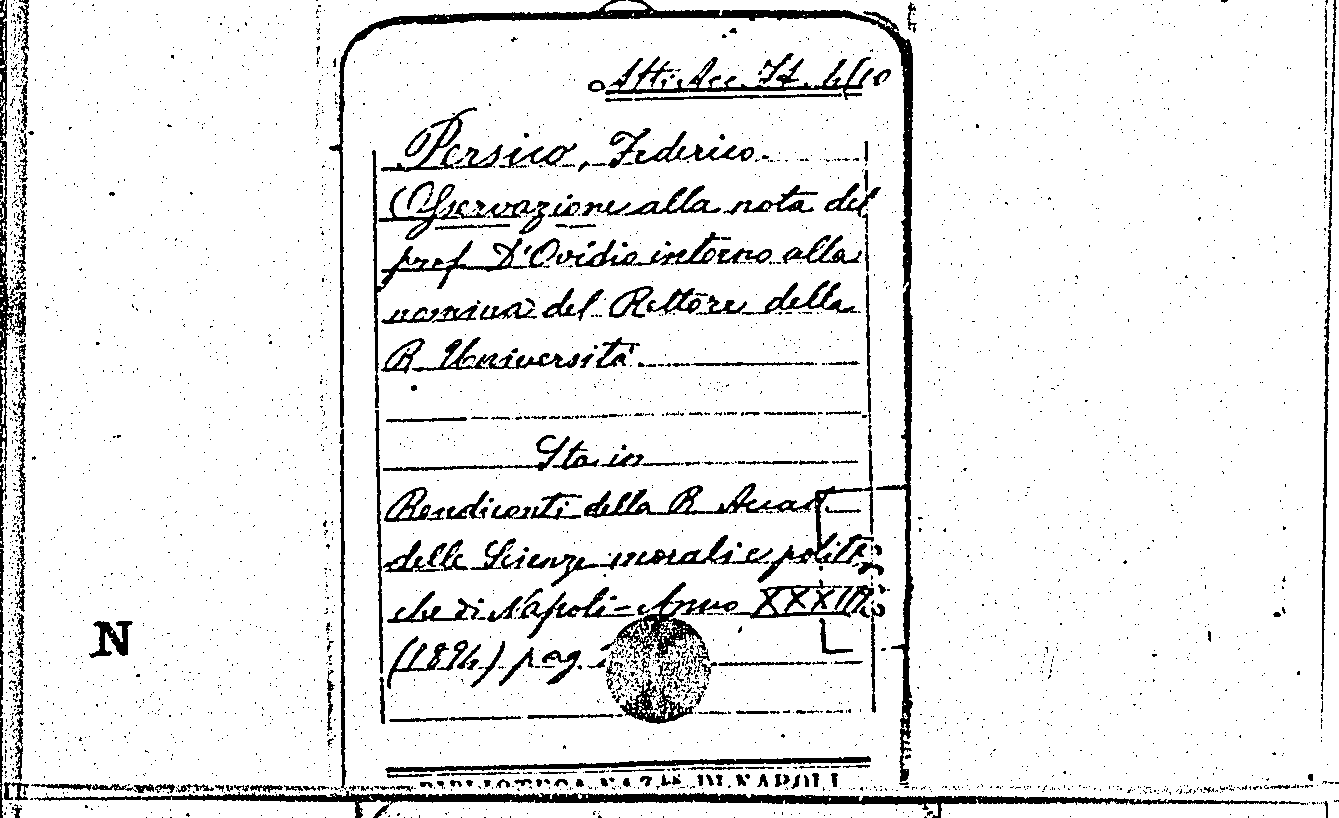 Atti Acc. It. 4/10
Persico, Federico.
Osservazione alla nota del
prof. D'Ovidio intorno alla
nomina del Rettore della
R. Università.
Sta in
Rendiconti della R. Accad.
delle Scienze morali e politi-
che di Napoli - Anno
(1894) pag.
N
BIBLIOTECA NAZ.LE DI NAPOLI